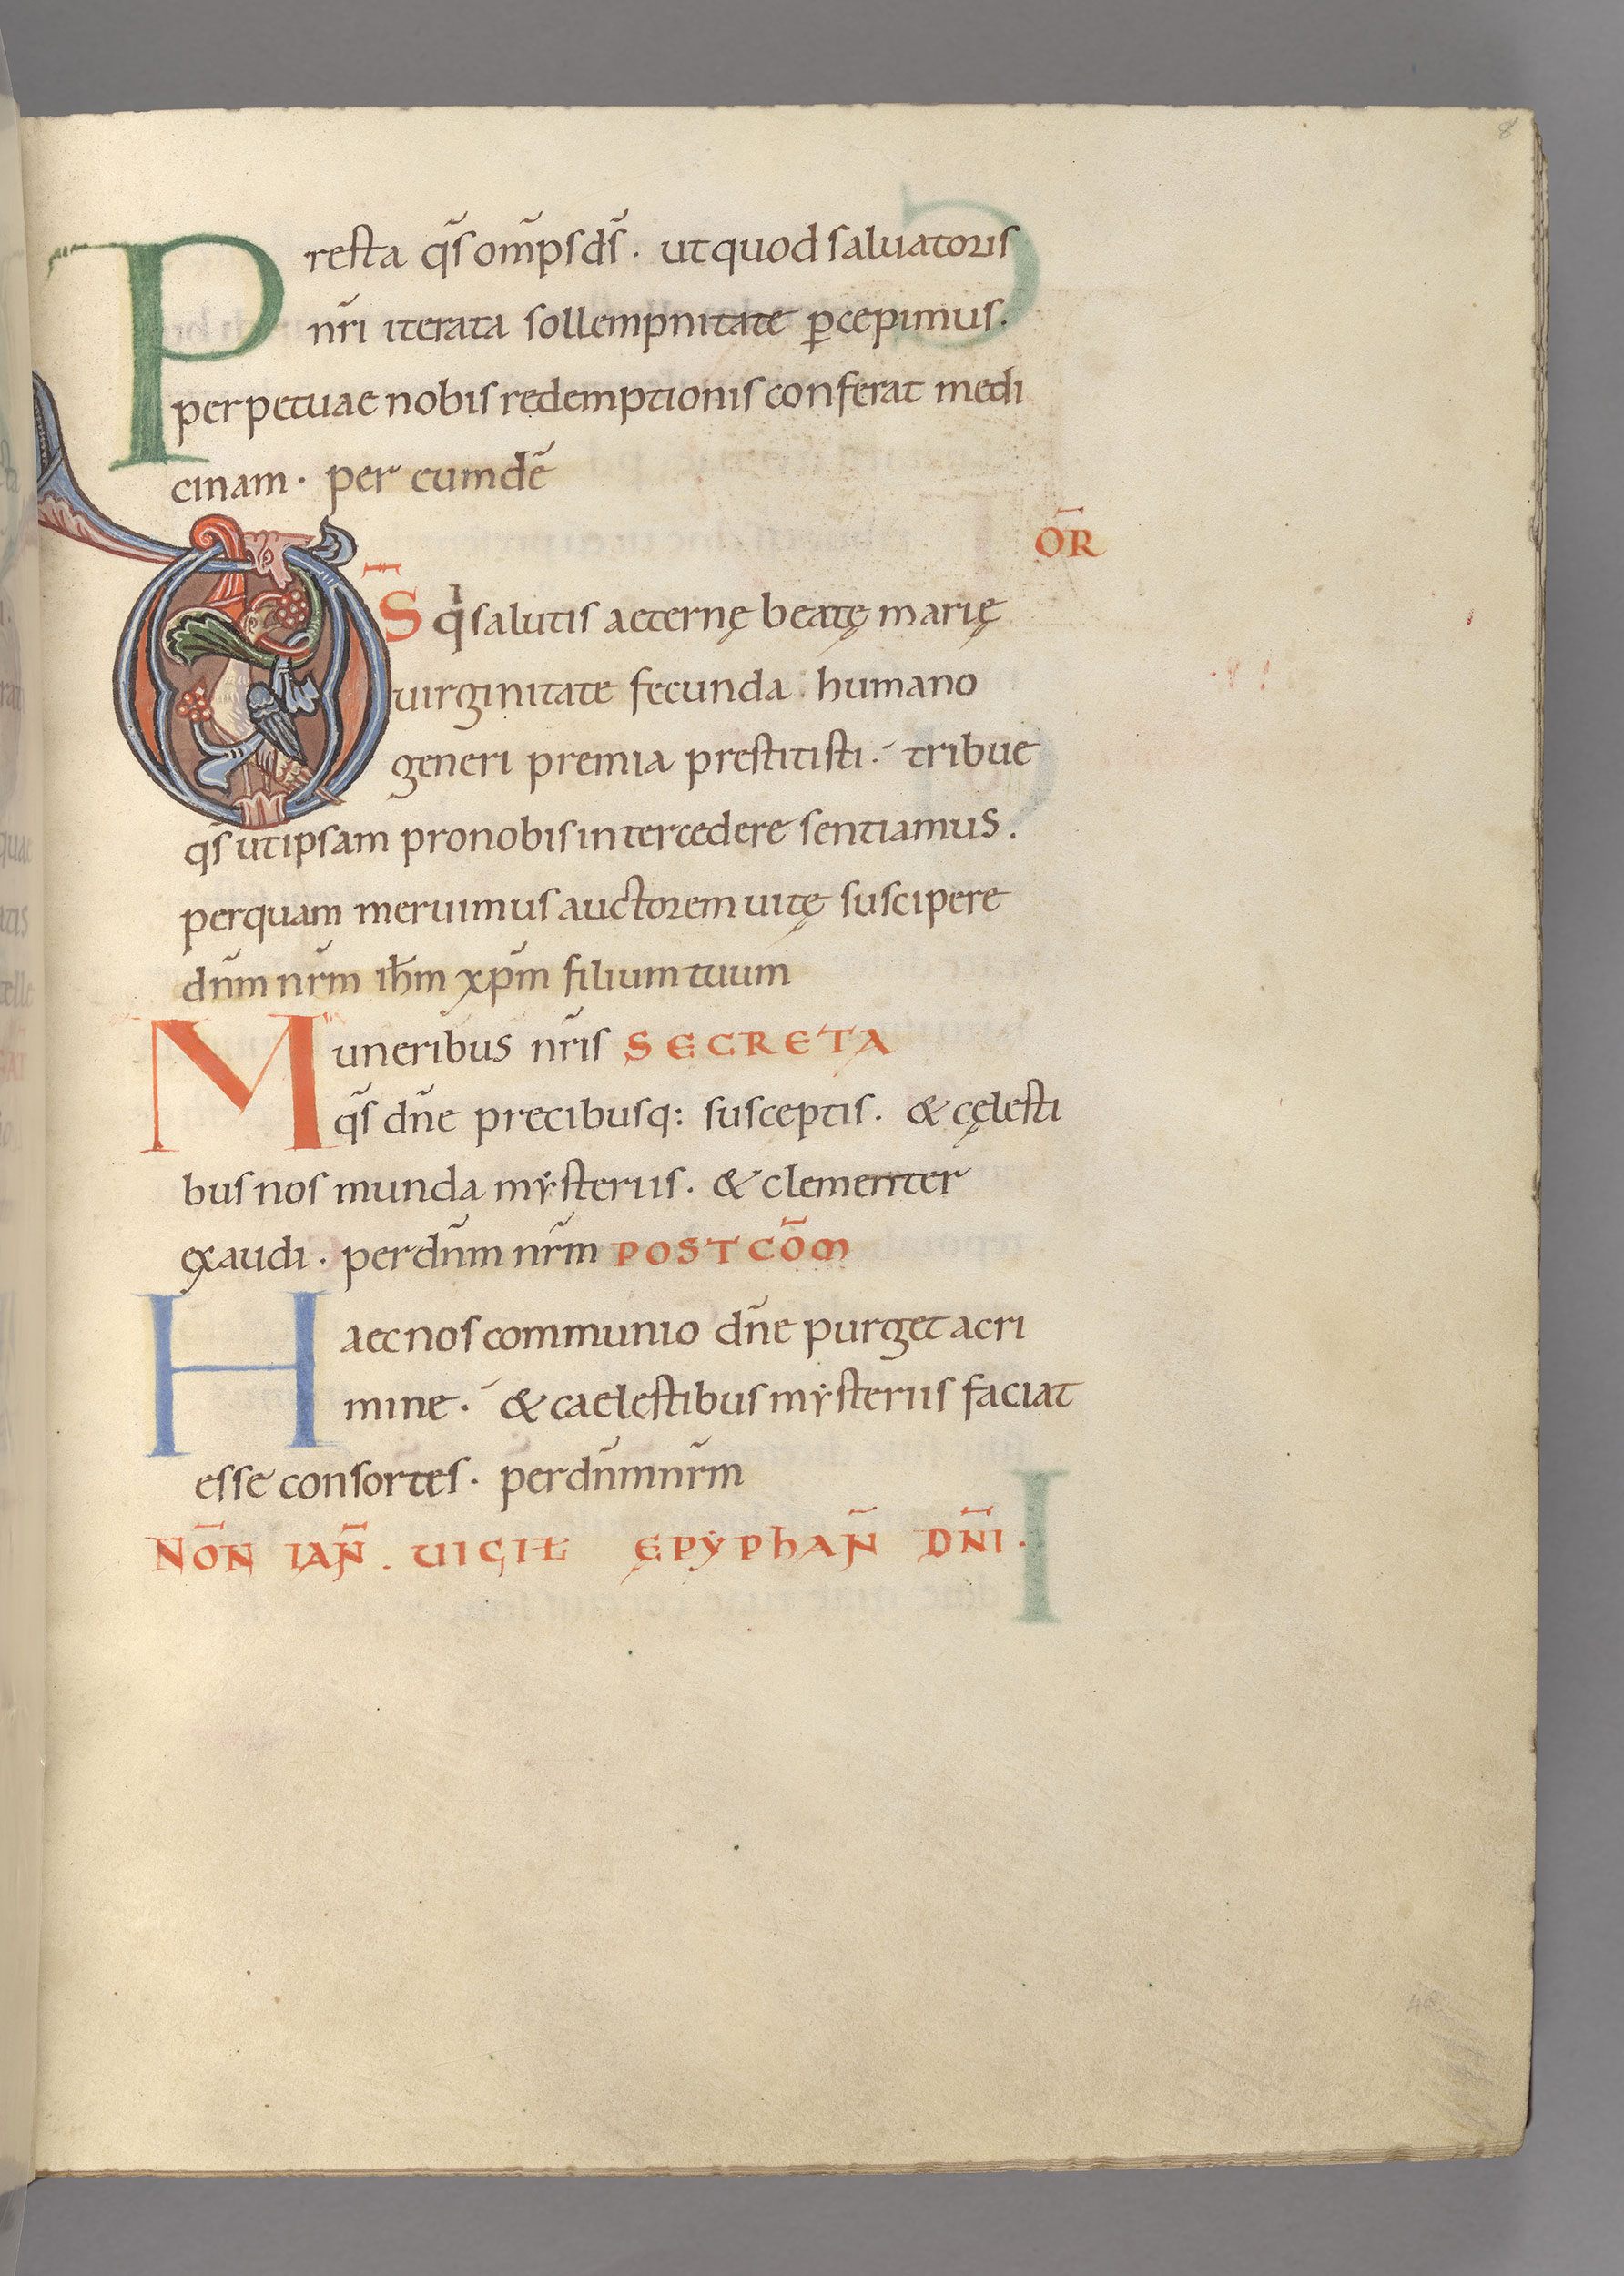 8
Presta q̃s om̃ps ds̃. ut quod saluatoris
nr̃i iterata sollempnitate p̲cepimus.
perpetuae nobis redemptionis conferat medi
cinam. per eumdẽ
OR̃
DS̄ qͥ salutis aeternę beatę marię
uirginitate fecunda. humano
generi premia prestitisti. tribue
q̃s ut ipsam pro nobis intercedere sentiamus.
per quam meruimus auctorem uitę suscipere
dñm nr̃m ihm̃ xpm̃ filium tuum
Muneribus nr̃is SECRETA
q̃s dñe precibusq: susceptis. & cęlesti
bus nos munda mẏsteriis. & clementer
exaudi. per dñm nr̃m POSTCÕM
Haec nos communio dñe purget a cri
mine. & caelestibus mẏsteriis faciat
esse consortes. per dñm nr̃m
NÕN IAÑ. UIGIŁ ĘPẎPhAÑ DÑI.